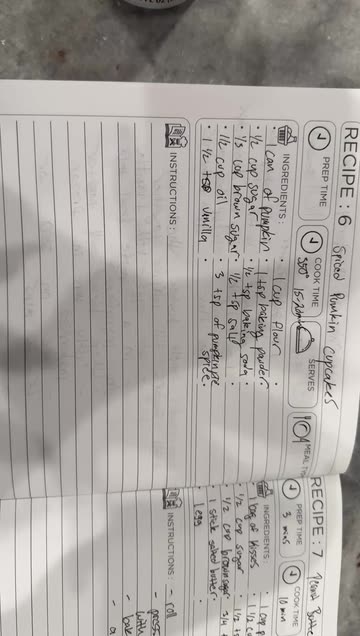 RECIPE : 6 Spiced Pumkin Cupcakes
PREP TIME
COOK TIME
350° 15-20min
SERVES
MEAL TY
INGREDIENTS :
• 1 can of pumpkin • 1 cup flour
• 1/2 cup sugar • 1 tsp baking powder
• 1/3 cup brown sugar • 1/2 tsp baking soda
• 1/2 cup oil • 1/2 tsp salt
• 1 1/2 tsp vanilla • 3 tsp of pumpkin pie spice.
INSTRUCTIONS :
RECIPE : 7 Peanut Butte
PREP TIME
3 mins
COOK TIME
10 min
INGREDIENTS
1 bag of kisses
1/2 cup sugar
1/2 cup brown sugar
1 stick salted butter
1 egg
INSTRUCTIONS : - roll
press
with
bake